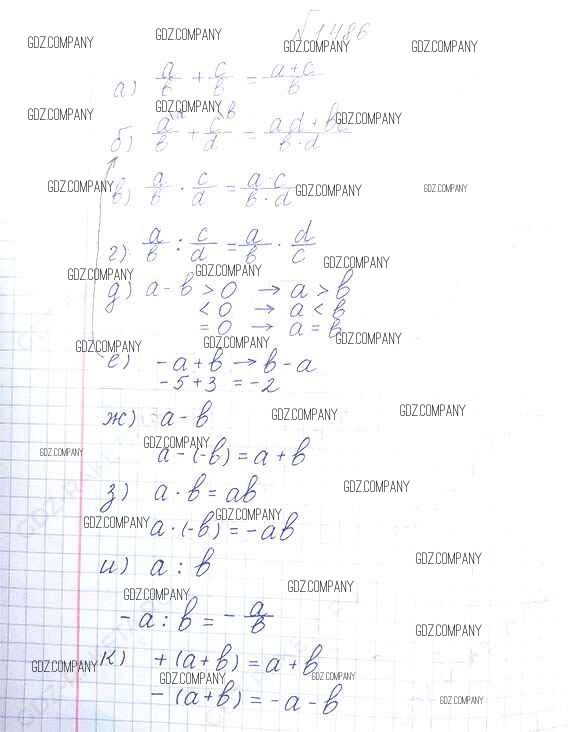 №1486
GDZ.COMPANY GDZ.COMPANY GDZ.COMPANY GDZ.COMPANY
а) a/b + c/b = a+c/b
GDZ.COMPANY GDZ.COMPANY GDZ.COMPANY
б) a\d/b + c\b/d = ad+bc/b·d
GDZ.COMPANY GDZ.COMPANY GDZ.COMPANY
в) a/b · c/d = a·c/b·d
г) a/b : c/d = a/b · d/c
GDZ.COMPANY GDZ.COMPANY GDZ.COMPANY
д) a-b > 0 → a > b
< 0 → a < b
= 0 → a = b
GDZ.COMPANY GDZ.COMPANY GDZ.COMPANY
е) -a+b → b-a
-5+3 = -2
ж) a-b
GDZ.COMPANY GDZ.COMPANY
GDZ.COMPANY GDZ.COMPANY
a-(-b) = a+b
з) a·b = ab
GDZ.COMPANY
GDZ.COMPANY GDZ.COMPANY
a·(-b) = -ab
и) a : b
GDZ.COMPANY
GDZ.COMPANY GDZ.COMPANY
-a : b = -a/b
GDZ.COMPANY
к) +(a+b) = a+b
GDZ.COMPANY GDZ.COMPANY GDZ.COMPANY
-(a+b) = -a-b
GDZ.COMPANY